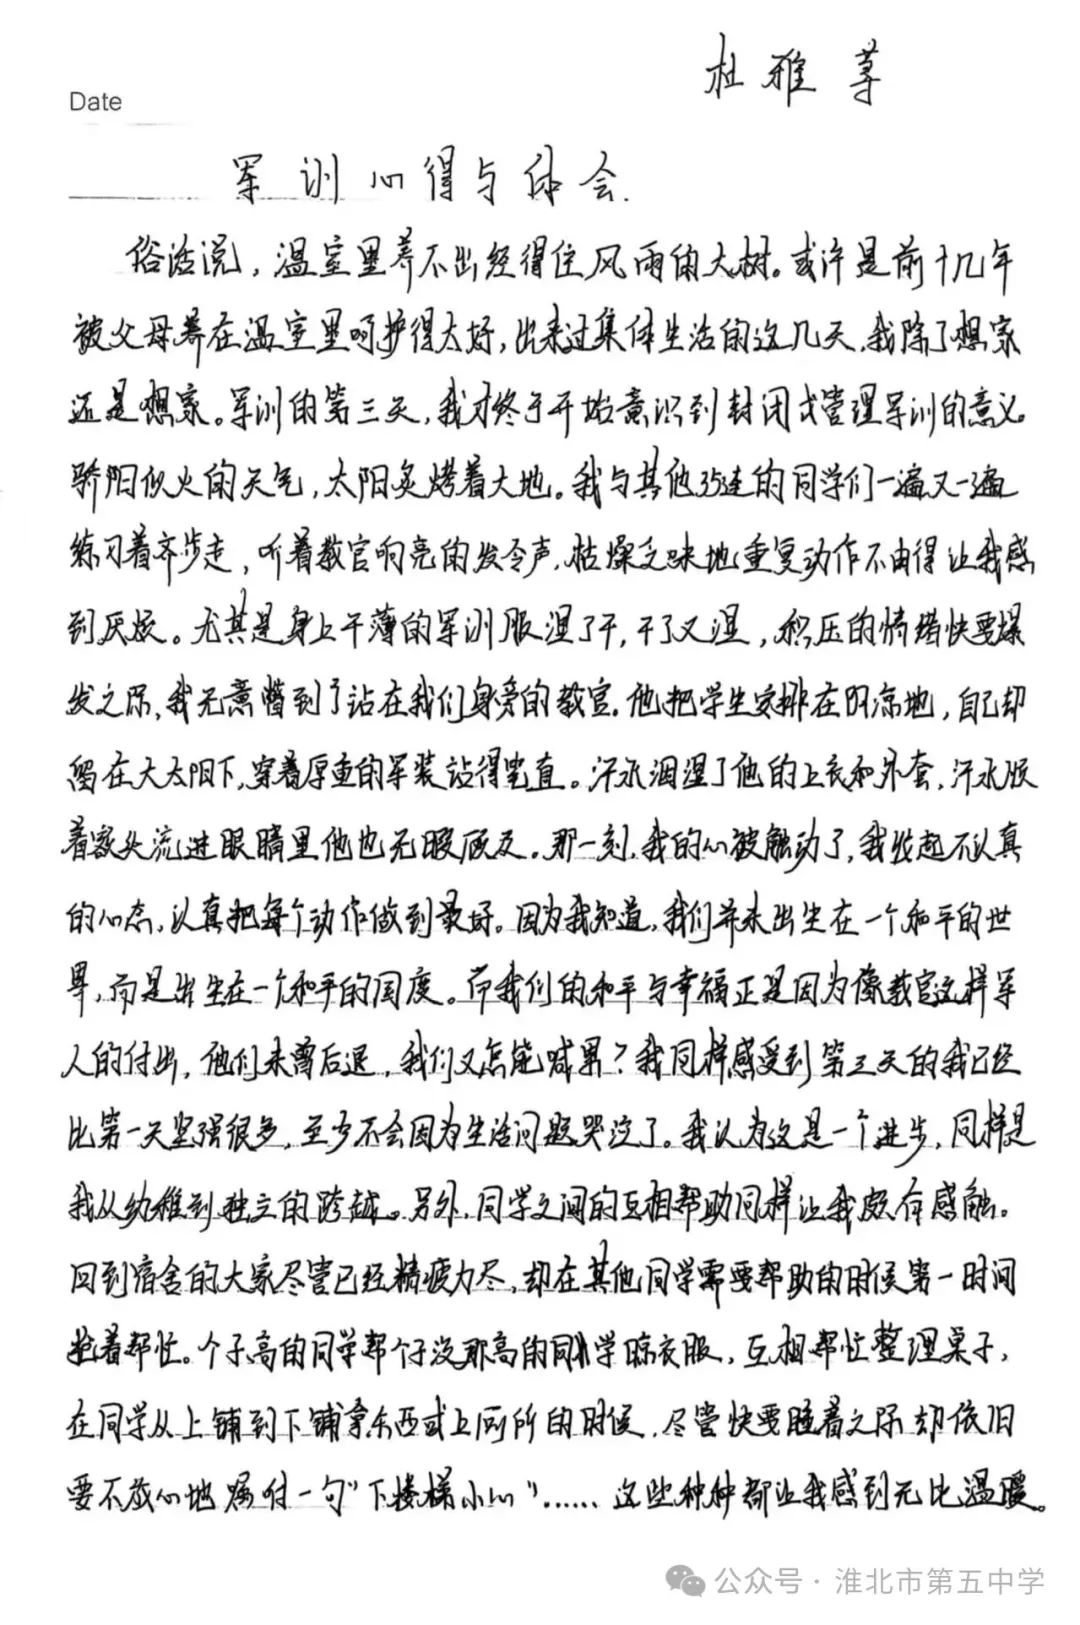 杜雅荨
Date
军训心得与体会.
俗话说，温室里养不出经得住风雨的大树。或许是前十几年
被父母养在温室里呵护得太好，出来过集体生活的这几天，我除了想家
还是想家。军训的第三天，我才终于开始意识到封闭式管理军训的意义。
骄阳似火的天气，太阳炙烤着大地。我与其他35连的同学们一遍又一遍
练习着齐步走，听着教官响亮的发令声，枯燥乏味地重复动作不由得让我感
到厌烦。尤其是身上干薄的军训服湿了干，干了又湿，积压的情绪快要爆
发之际，我无意瞥到了站在我们身旁的教官，他把学生安排在阴凉地，自己却
留在大太阳下，穿着厚重的军装站得笔直。汗水洇湿了他的上衣和外套，汗水顺
着额头流进眼睛里他也无暇顾及。那一刻，我的心被触动了，我收起不认真
的心态，认真把每个动作做到最好。因为我知道，我们并未出生在一个和平的世
界，而是出生在一个和平的国度。而我们的和平与幸福正是因为像教官这样军
人的付出，他们未曾后退，我们又怎能喊累？我同样感受到第三天的我已经
比第一天坚强很多，至少不会因为生活问题哭泣了。我认为这是一个进步，同样是
我从幼稚到独立的跨越。另外，同学之间的互相帮助同样让我颇有感触。
回到宿舍的大家尽管已经精疲力尽，却在其他同学需要帮助的时候第一时间
抢着帮忙。个子高的同学帮个子没那高的同学晾衣服，互相帮忙整理桌子，
在同学从上铺到下铺拿东西或上厕所的时候，尽管快要睡着之际却依旧
要不放心地嘱咐一句“下楼梯小心”……这些种种都让我感到无比温暖。
公众号·淮北市第五中学